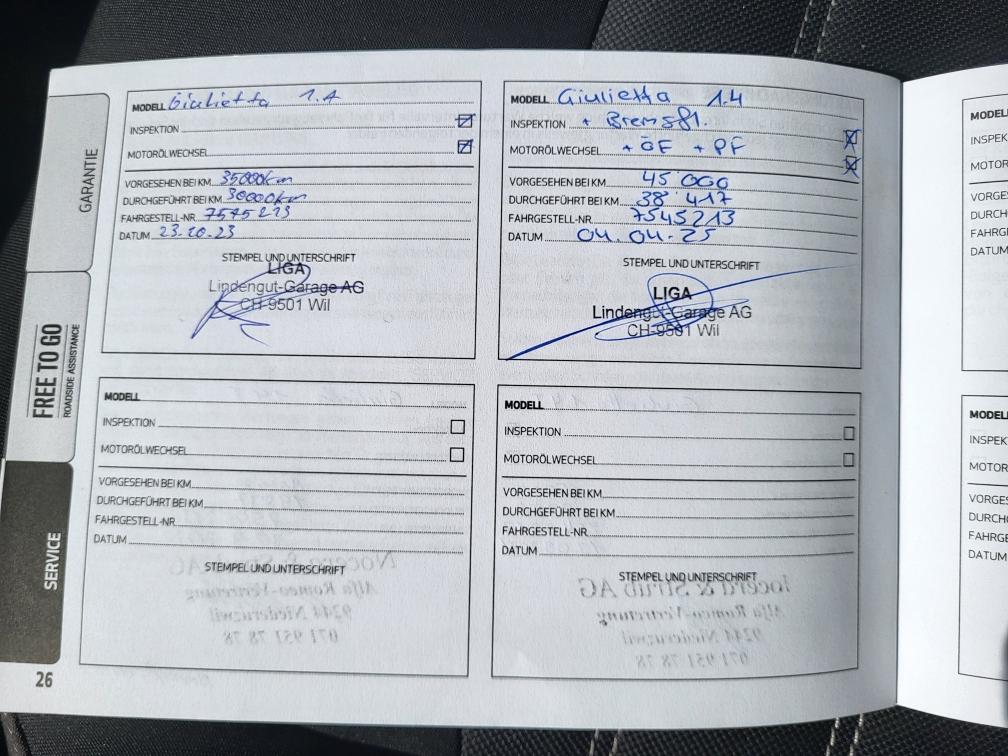 GARANTIE
FREE TO GO
ROADSIDE ASSISTANCE
SERVICE
MODELL Giulietta 1.4
INSPEKTION
MOTORÖLWECHSEL
VORGESEHEN BEI KM 35000km
DURCHGEFÜHRT BEI KM 30000km
FAHRGESTELL-NR 7545213
DATUM 23.10.23
STEMPEL UND UNTERSCHRIFT
LIGA
Lindengut-Garage AG
CH-9501 Wil
MODELL Giulietta 1.4
INSPEKTION + Bremsfl.
MOTORÖLWECHSEL + ÖF + PF
VORGESEHEN BEI KM 45'000
DURCHGEFÜHRT BEI KM 38'417
FAHRGESTELL-NR 7545213
DATUM 04.04.25
STEMPEL UND UNTERSCHRIFT
LIGA
Lindengut-Garage AG
CH-9501 Wil
MODELL
INSPEKTION
MOTORÖLWECHSEL
VORGESEHEN BEI KM
DURCHGEFÜHRT BEI KM
FAHRGESTELL-NR
DATUM
STEMPEL UND UNTERSCHRIFT
MODELL
INSPEKTION
MOTORÖLWECHSEL
VORGESEHEN BEI KM
DURCHGEFÜHRT BEI KM
FAHRGESTELL-NR
DATUM
STEMPEL UND UNTERSCHRIFT
26
MODELL
INSPEK
MOTOR
VORGES
DURCH
FAHRG
DATUM
MODELL
INSPEK
MOTOR
VORGES
DURCH
FAHRGE
DATUM